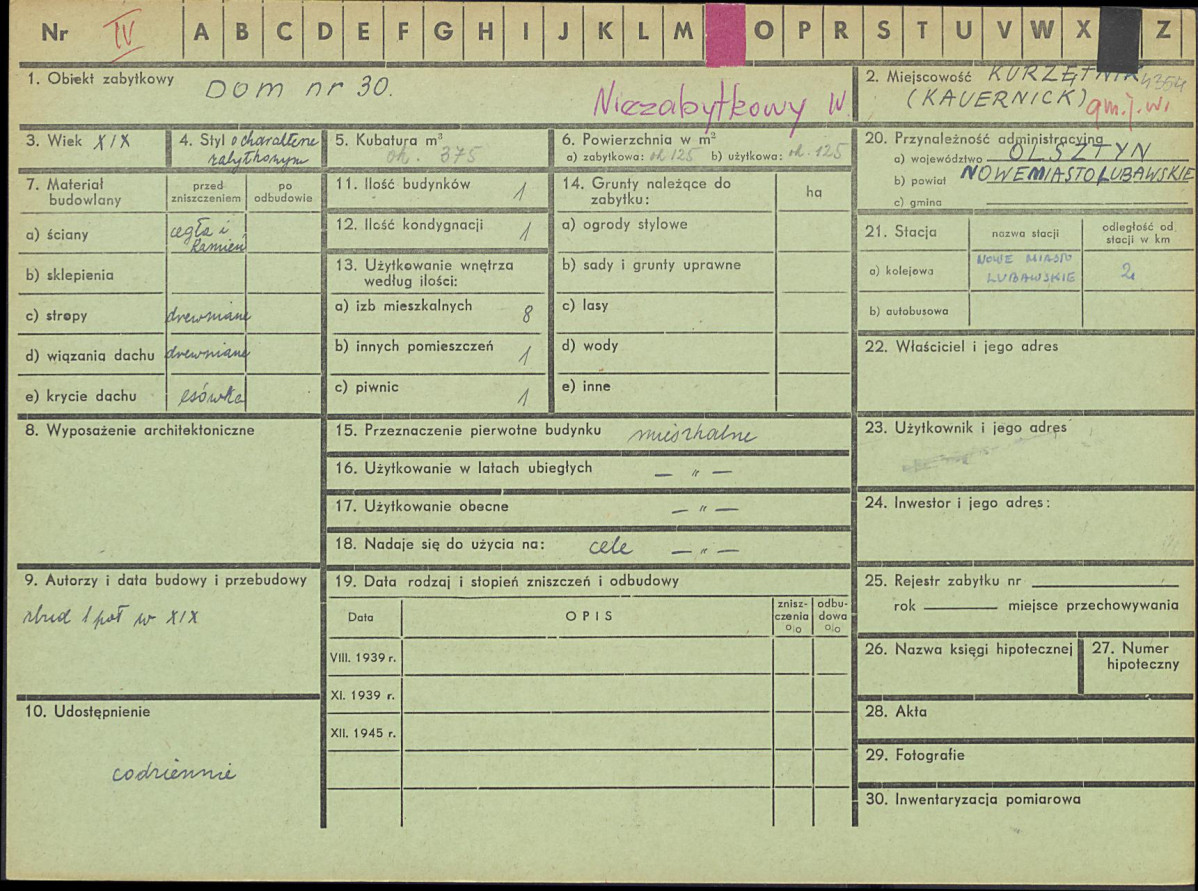 Nr IV A B C D E F G H I J K L M O P R S T U V W X Z
1. Obiekt zabytkowy Dom nr 30.
Niezabytkowy
2. Miejscowość KURZĘTNIK 4354
(KAUERNICK) gm.j.w.
3. Wiek XIX
4. Styl o charakterze
zabytkowym
5. Kubatura m³
ok. 375
6. Powierzchnia w m²
a) zabytkowa: ok 125 b) użytkowa: ok. 125
20. Przynależność administracyjna
a) województwo OLSZTYN
b) powiat NOWEMIASTO LUBAWSKIE
c) gmina
7. Materiał
budowlany
przed
zniszczeniem
po
odbudowie
a) ściany cegła i
kamień
b) sklepienia
c) stropy drewniane
d) wiązania dachu drewniane
e) krycie dachu esówka
11. Ilość budynków 1
12. Ilość kondygnacji 1
13. Użytkowanie wnętrza
według ilości:
a) izb mieszkalnych 8
b) innych pomieszczeń 1
c) piwnic 1
14. Grunty należące do
zabytku:
ha
a) ogrody stylowe
b) sady i grunty uprawne
c) lasy
d) wody
e) inne
21. Stacja
nazwa stacji
odległość od
stacji w km
a) kolejowa NOWE MIASTO
LUBAWSKIE 2
b) autobusowa
22. Właściciel i jego adres
8. Wyposażenie architektoniczne
15. Przeznaczenie pierwotne budynku mieszkalne
16. Użytkowanie w latach ubiegłych — „ —
17. Użytkowanie obecne — „ —
18. Nadaje się do użycia na: cele — „ —
23. Użytkownik i jego adres
24. Inwestor i jego adres:
9. Autorzy i data budowy i przebudowy
zbud 1 poł w XIX
19. Data rodzaj i stopień zniszczeń i odbudowy
Data
OPIS
znisz-
czenia
%
odbu-
dowa
%
VIII. 1939 r.
XI. 1939 r.
XII. 1945 r.
25. Rejestr zabytku nr
rok miejsce przechowywania
26. Nazwa księgi hipotecznej
27. Numer
hipoteczny
10. Udostępnienie
codziennie
28. Akta
29. Fotografie
30. Inwentaryzacja pomiarowa